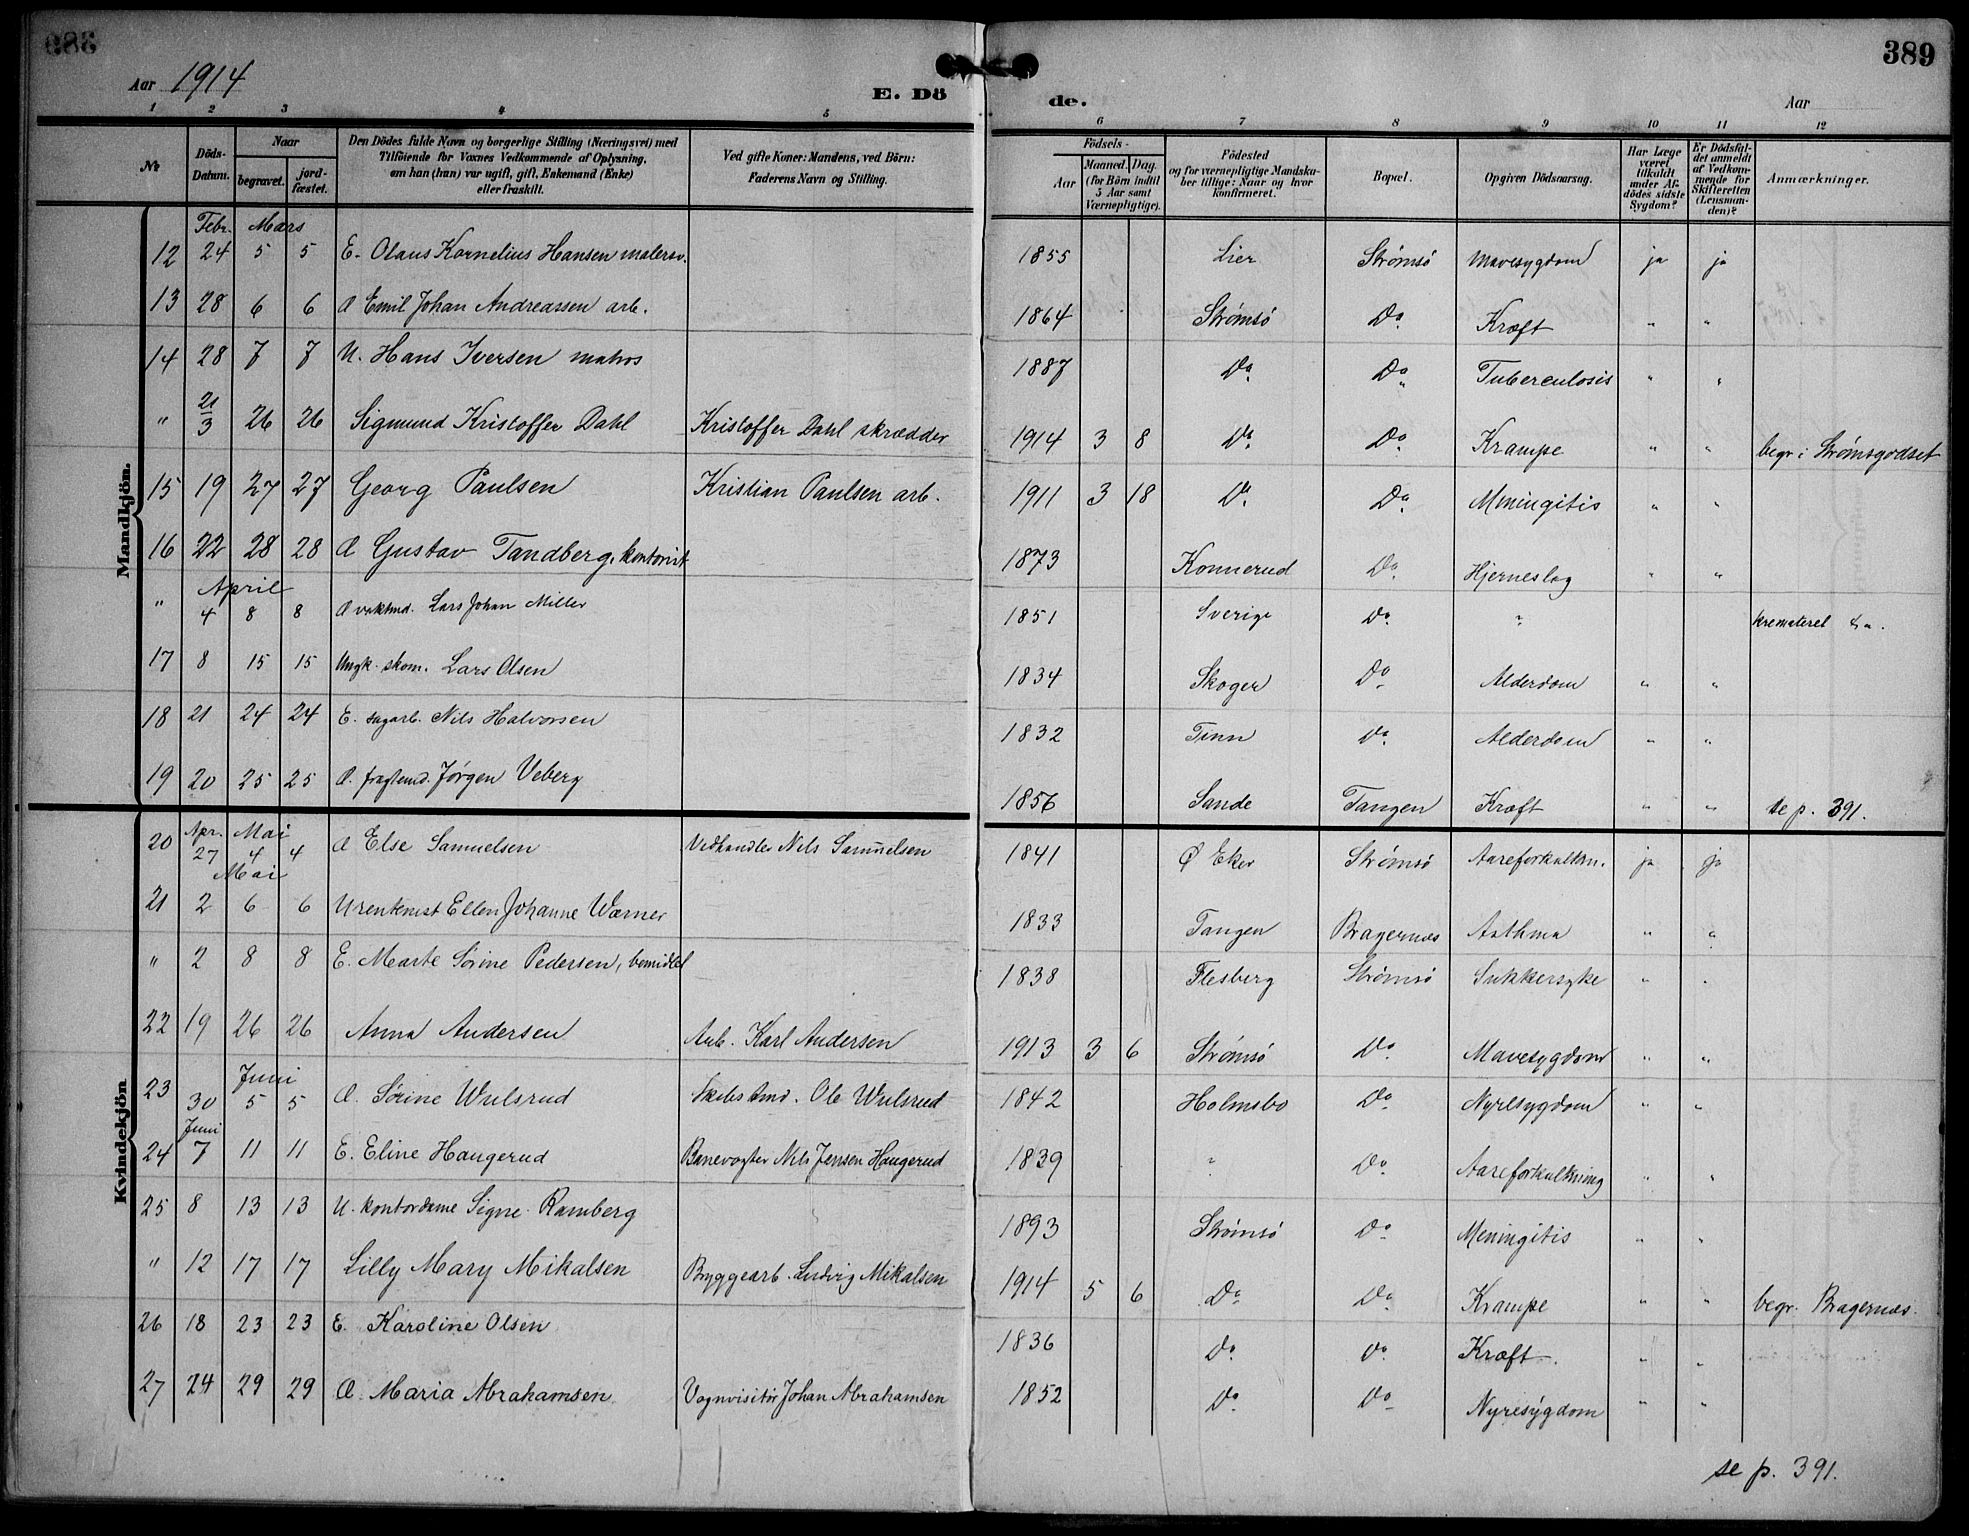 389
Aar 1914
E. Dö de.
Aar
1 2 3 4 5 6 7 8 9 10 11 12
№ Döds-Datum. Naar begravet. jord-fæstet. Den Dödes fulde Navn og borgerlige Stilling (Næringsvei) med Tilföiende for Voxnes Vedkommende af Oplysning, om han (hun) var ugift, gift, Enkemand (Enke) eller fraskilt. Ved gifte Koner: Mandens, ved Börn: Faderens Navn og Stilling. Födsels- Aar Maaned. Dag. (for Börn indtil 5 Aar samt Værnepligtige). Födested og for værnepligtige Mandskaber tillige: Naar og hvor konfirmeret. Bopæl. Opgiven Dödsaarsag. Har Læge været tilkaldt under Afdödes sidste Sygdom? Er Dödsfaldet anmeldt af Vedkommende for Skifteretten (Lensmanden)? Anmærkninger.
Mandkjön.
Febr. Mars
12 24 5 5 E. Olaus Kornelius Hansen malersv. 1855 Lier Strømsö Mavesygdom ja ja
13 28 6 6 G Emil Johan Andreassen arb. 1864 Strømsö Do Kræft " "
14 28 7 7 U. Hans Iversen matros 1887 Do Do Tuberculosis " "
" 21/3 26 26 Sigmund Kristoffer Dahl Kristoffer Dahl skrædder 1914 3 8 Do Do Krampe " " begr. i Strømsgodset
15 19 27 27 Georg Paulsen Kristian Paulsen arb. 1911 3 18 Do Do Meningitis " "
16 22 28 28 G Gustav Tandberg, kontorist 1873 Konnerud Do Hjerneslag " "
April
" 4 8 8 G vaktmd. Lars Johan Miller 1851 Sverige Do " kremateret
17 8 15 15 Ungk. skom. Lars Olsen 1834 Skoger Do Alderdom " "
18 21 24 24 E. sagarb. Nils Halvorsen 1832 Tinn Do Alderdom " "
19 20 25 25 G. fragtemd. Jørgen Veberg 1856 Sande Tangen Kræft " " se p. 391.
Kvindekjön
Apr. Mai
20 27 4 4 G Else Samuelsen Vedhandler Nils Samuelsen 1841 Ø Eker Strømsö Aareforkalkn. ja ja
Mai
21 2 6 6 U rentenist Ellen Johanne Wærner 1833 Tangen Bragernæs Asthma " "
" 2 8 8 E. Marte Sørine Pedersen, bemidlet 1838 Flesberg Strømsö Sukkersyke " "
22 19 26 26 Anna Andersen Arb. Karl Andersen 1913 3 6 Strømsö Do Mavesygdom " "
Juni
23 30 5 5 G. Sørine Wulsrud Skibstmd. Ole Wulsrud 1842 Holmsbo Do Nyresygdom " "
Juni
24 7 11 11 E. Eline Haugerud Banevogter Nils Jensen Haugerud 1839 " Do Aareforkalkning " "
25 8 13 13 U. kontordame Signe Ramberg 1893 Strømsö Do Meningitis " "
" 12 17 17 Lilly Mary Mikalsen Bryggearb. Ludvig Mikalsen 1914 5 6 Do Do Krampe " " begr. Bragernæs.
26 18 23 23 E. Karoline Olsen 1836 Do Do Kræft " "
27 24 29 29 G. Maria Abrahamsen Vognvisitør Johan Abrahamsen 1852 Do Do Nyresygdom " "
se p. 391.